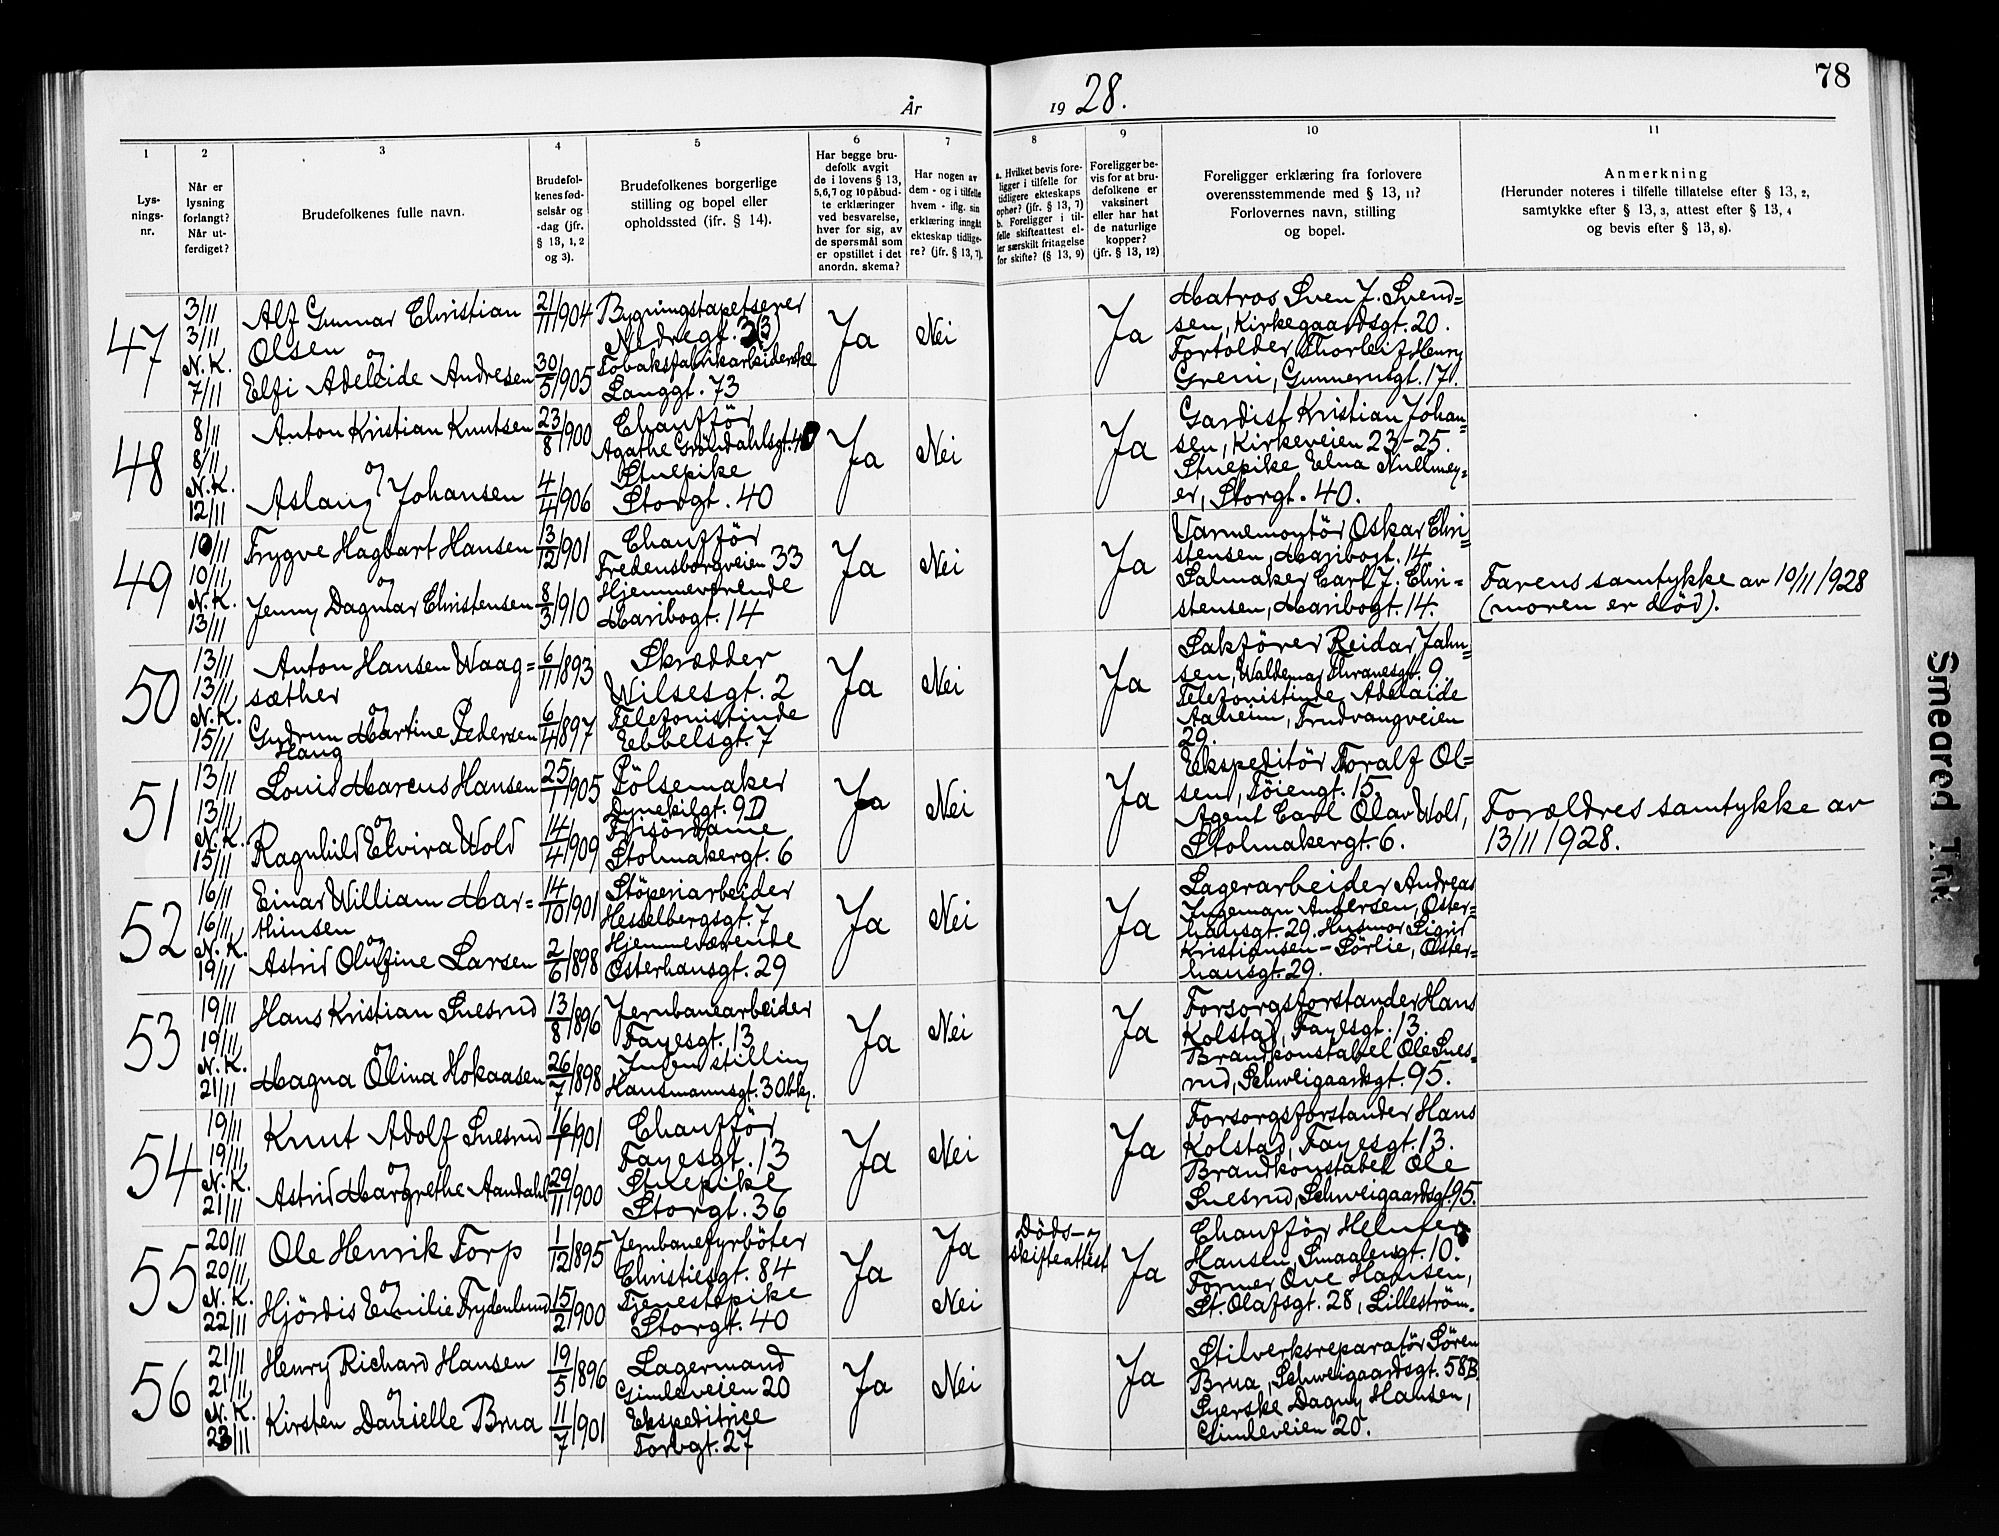 År 1928.
78
1
2
3
4
5
6
7
8
9
10
11
Lys-
nings-
nr.
Når er
lysning
forlangt?
Når ut-
ferdiget?
Brudefolkenes fulle navn.
Brudefol-
kenes fød-
selsår og
-dag (jfr.
§ 13, 1, 2
og 3).
Brudefolkenes borgerlige
stilling og bopel eller
opholdssted (ifr. § 14).
Har begge bru-
defolk avgit
de i lovens § 13,
5,6,7 og 10 påbud-
te erklæringer
ved besvarelse,
hver for sig, av
de spørsmål som
er opstillet i det
anordn. skema?
Har nogen av
dem - og i tilfelle
hvem - iflg. sin
erklæring inngått
ekteskap tidlige-
re? (jfr. § 13, 7).
a. Hvilket bevis fore-
ligger i tilfelle for
tidligere ekteskaps
ophør? (jfr. § 13, 7)
b. Foreligger i til-
felle skifteattest el-
ler særskilt fritagelse
for skifte? (§ 13, 9)
Foreligger be-
vis for at bru-
defolkene er
vaksinert
eller har hat
de naturlige
kopper?
(jfr. § 13, 12)
Foreligger erklæring fra forlovere
overensstemmende med § 13, 11?
Forlovernes navn, stilling
og bopel.
Anmerkning
(Herunder noteres i tilfelle tillatelse efter § 13, 2,
samtykke efter § 13, 3, attest efter § 13, 4
og bevis efter § 13, 8).
47
3/11
3/11
N.K.
7/11
Alf Gunnar Christian
Olsen
og
Elfi Adelaide Andresen
21/11 1904
30/5 1905
Bygningstapetserer
Nedregt. 3(3)
Tobaksfabrikarbeiderske
Langgt. 73
Ja
Nei
Ja
Matros Sven J. Svend=
sen, Kirkegaardsgt. 20.
Fortolder Thorleif Henry
Greni, Gunnerusgt. 17.
48
8/11
8/11
N.K.
12/11
Anton Kristian Knutsen
og
Aslaug Johansen
23/8 1900
4/4 1906
Chaufför
Agathe Gröndahlsgt. 40
Stuepike
Storgt. 40
Ja
Nei
Ja
Gardist Kristian Johan=
sen, Kirkeveien 23-25.
Stuepike Elna Nullmey=
er, Storgt. 40.
49
10/11
10/11
N.K.
13/11
Trygve Hagbart Hansen
og
Jenny Dagmar Christensen
13/12 1901
8/3 1910
Chaufför
Fredensborgveien 33
Hjemmeværende
Maribogt. 14
Ja
Nei
Ja
Varmemontör Oskar Chri=
stensen, Maribogt. 14
Salmaker Carl J. Chri=
stensen, Maribogt. 14.
Farens samtykke av 10/11 1928
(moren er död).
50
13/11
13/11
N.K.
15/11
Anton Hansen Waag=
sæther
og
Gudrun Martine Pedersen
Haug
6/11 1893
6/4 1897
Skrædder
Wilsesgt. 2
Telefonistinde
Ebbelsgt. 7
Ja
Nei
Ja
Sakförer Reidar Jahn=
sen, Waldemar Thranesgt. 9
Telefonistinde Adelaide
Aaheim, Trudvangveien
29.
51
13/11
13/11
N.K.
15/11
Louis Marcus Hansen
og
Ragnhild Elvira Wold
25/1 1905
14/4 1909
Pölsemaker
Dynekilgt. 9D
Frisördame
Stolmakergt. 6
Ja
Nei
Ja
Ekspeditör Toralf Ol=
sen, Töiengt. 15.
Agent Carl Olav Wold,
Stolmakergt. 6.
Forældres samtykke av
13/11 1928.
52
16/11
16/11
N.K.
19/11
Einar William Mar=
thinsen
og
Astrid Olufine Larsen
14/10 1901
2/6 1898
Stöperiarbeider
Hesselbergsgt. 7
Hjemmeværende
Osterhausgt. 29
Ja
Nei
Ja
Lagerarbeider Andreas
Ingeman Andersen, Oster=
hausgt. 29. Husmor Sigrid
Kristiansen-Sörlie, Oster=
hausgt. 29.
53
19/11
19/11
N.K.
21/11
Hans Kristian Snesrud
og
Magna Olina Hokaasen
13/8 1896
26/7 1898
Jernbanearbeider
Fayesgt. 13
Ingen stilling
Hausmannsgt. 30 bkg.
Ja
Nei
Ja
Forsorgsforstander Hans
Kolstad, Fayesgt. 13.
Brandkonstabel Ole Snes=
rud, Schweigaardsgt. 95.
54
19/11
19/11
N.K.
21/11
Knut Adolf Snesrud
og
Astrid Margrethe Aandahl
16/1 1901
29/11 1900
Chaufför
Fayesgt. 13
Stuepike
Storgt. 36
Ja
Nei
Ja
Forsorgsforstander Hans
Kolstad, Fayesgt. 13.
Brandkonstabel Ole
Snesrud, Schweigaardsgt. 95.
55
20/11
20/11
N.K.
22/11
Ole Henrik Torp
og
Hjördis Emilie Frydenlund
1/12 1895
15/2 1900
Jernbanefyrböter
Christiesgt. 84
Tjenestepike
Storgt. 40
Ja
Ja
Nei
Döds- og
skifteattest
Ja
Chaufför Helmer
Hansen, Smaalensgt. 10.
Former Ove Hansen,
St. Olafsgt. 28, Lilleström.
56
21/11
21/11
N.K.
23/11
Henry Richard Hansen
og
Kirsten Danielle Brua
19/5 1896
11/7 1901
Lagermand
Gimleveien 20
Ekspeditrice
Torvgt. 27
Ja
Nei
Ja
Stilverksreparatör Sören
Brua, Schweigaardsgt. 58B
Syerske Dagny Hansen,
Gimleveien 20.
Smeared Ink